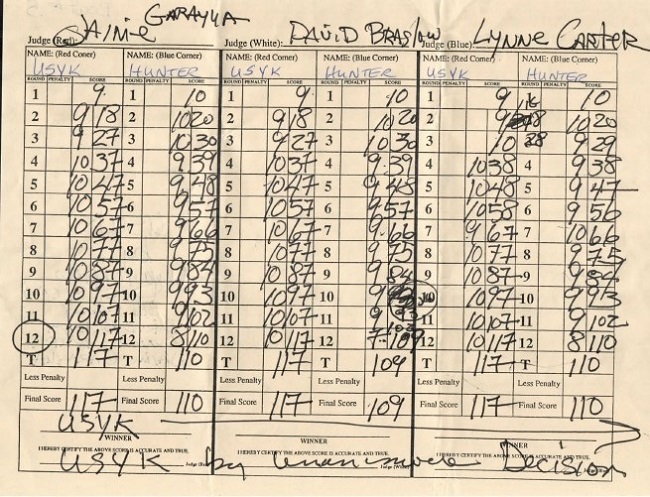 Judge (Red): JAIME GARAYUA Judge (White): DAVID BRASLOW Judge (Blue): LYNNE CARTER
NAME: (Red Corner) NAME: (Blue Corner) NAME: (Red Corner) NAME: (Blue Corner) NAME: (Red Corner) NAME: (Blue Corner)
USYK HUNTER USYK HUNTER USYK HUNTER
ROUND PENALTY SCORE ROUND PENALTY SCORE ROUND PENALTY SCORE ROUND PENALTY SCORE ROUND PENALTY SCORE ROUND PENALTY SCORE
1 9 1 10 1 9 1 10 1 9 1 10
2 9 18 2 10 20 2 9 18 2 10 20 2 9 18 10 20
3 9 27 3 10 30 3 9 27 3 10 30 3 10 28 9 29
4 10 37 4 9 39 4 10 37 4 9 39 4 10 38 4 9 38
5 10 47 5 9 48 5 10 47 5 9 48 5 10 48 5 9 47
6 10 57 6 9 57 6 10 57 6 9 57 6 10 58 6 9 56
7 10 67 7 9 66 7 10 67 7 9 66 7 9 67 7 10 66
8 10 77 8 9 75 8 10 77 8 9 75 8 10 77 8 9 75
9 10 87 9 9 84 9 10 87 9 9 84 9 10 87 9 9 84
10 10 97 10 9 93 10 10 97 10 9 10 10 97 10 9 93
11 10 107 11 9 102 11 10 107 11 9 11 10 107 11 9 102
12 10 117 12 8 110 12 10 117 12 7 109 12 10 117 12 8 110
T 117 T 110 T 117 T 109 T 117 T 110
Less Penalty Less Penalty Less Penalty Less Penalty Less Penalty Less Penalty
Final Score 117 Final Score 110 Final Score 117 Final Score 109 Final Score 117 Final Score 110
USYK
WINNER WINNER WINNER
I HEREBY CERTIFY THE ABOVE SCORE IS ACCURATE AND TRUE. I HEREBY CERTIFY THE ABOVE SCORE IS ACCURATE AND TRUE. I HEREBY CERTIFY THE ABOVE SCORE IS ACCURATE AND TRUE.
USYK by Unanimous Decision